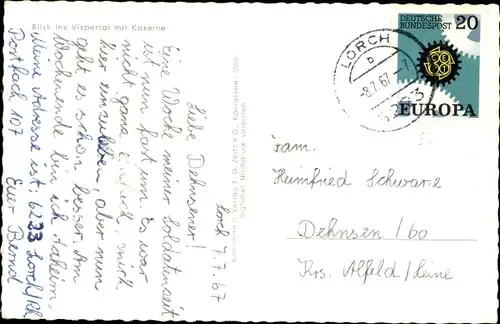 Blick ins Vispertal mit Kaserne
Lorch 7.7.67
Liebe Dehnsener!
Eine Woche meiner Soldatenzeit
ist nun fast um. Es war
nicht ganz einfach, mich
hier einzuleben, aber nun
geht es schon besser. Am
Wochenende bin ich daheim.
Meine Adresse ist: 6223 Lorch/Rh
Postfach 107
Euer Bernd
DEUTSCHE
BUNDESPOST
20
EUROPA
LORCH
b
-8.7.67
Fam.
Heimfried Schwarze
Dehnsen / 60
Krs. Alfeld / Leine